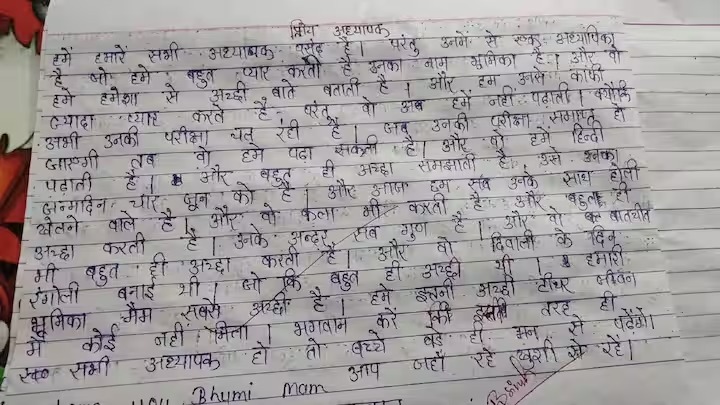 प्रिय अध्यापक
हमें हमारे सभी अध्यापक पसंद है। परंतु उनमें से एक अध्यापिका
है जो हमे बहुत प्यार करती है उनका नाम भूमिका है। और वो
हमे हमेशा से अच्छी बाते बताती है। और हम उनसे काफी
ज्यादा प्यार करते है परंतु वो अब हमें नहीं पढ़ाती। क्योंकि
अभी उनकी परीक्षा चल रही है। जब उनकी परीक्षा समाप्त हो
जाएगी तब वो हमे पढ़ा सकती है। और वो हमें हिन्दी
पढ़ाती है। और बहुत ही अच्छा समझाती है। उसे उनका
जन्मदिन चार जून को है। और आज हम सब उनके साथ होली
खेलने वाले है। और वो कला भी करती है और बहुत ही
अच्छा करती है। उनके अन्दर सब गुण है। और वो बातचीत
भी बहुत ही अच्छा करती है। और वो दिवाली के दिन
रंगोली बनाई थी। जो कि बहुत ही अच्छी थी। हमारी
भूमिका मैम सबसे अच्छी है। हमे इतनी अच्छी टीचर जीवन
में कोई नहीं मिला। भगवान करें की इसी तरह ही
सभी अध्यापक हो तो बच्चे बड़े ही मन से पढ़ेंगे।
आप जहाँ रहे खुशी से रहें।
you Bhumi Mam